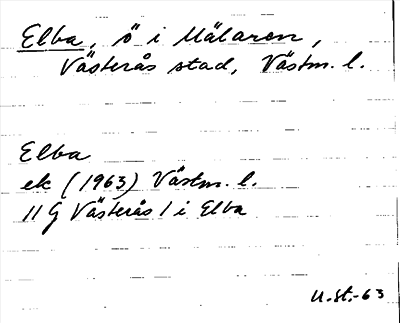 Elba, ö i Mälaren,
Västerås stad, Västm. l.
Elba
ek (1963) Västm. l.
11 G Västerås 1 i Elba
U.St.-63